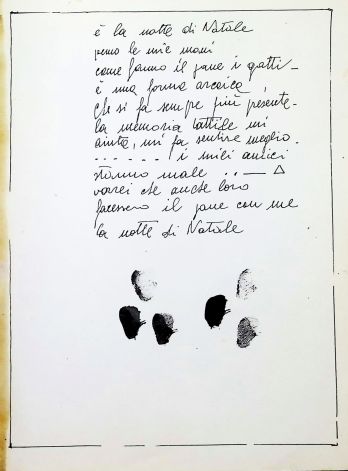 è la notte di Natale
penso le mie mani
come fanno il pane i gatti _
è una forma arcaica,
che si fa sempre più presente _
la memoria tattile mi
aiuta, mi fa sentire meglio.
. . . . . . i miei amici
stanno male .. — △
vorrei che anche loro
facessero il pane con me
la notte di Natale